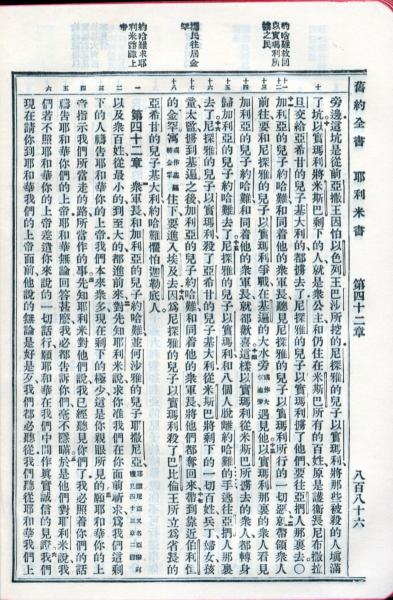 約哈難救回
以實瑪利所
擄之民
擄民往居金
罕
約哈難求耶
利米諮諏上
帝
舊約全書 耶利米書 第四十二章 八百八十六
旁邊這坑是從前亞撒王因怕以色列王巴沙所挖的尼探雅的兒子以實瑪利將那些被殺的人填滿
十 了坑以實瑪利將米斯巴剩下的人就是衆公主和仍住在米斯巴所有的百姓原是護衞長尼布撒拉
旦交給亞希甘的兒子基大利的都擄去了尼探雅的兒子以實瑪利擄了他們要往亞捫人那裏去○
十一 加利亞的兒子約哈難和同着他的衆軍長聽見尼探雅的兒子以實瑪利所行的一切惡就帶領衆人
前往要和尼探雅的兒子以實瑪利爭戰在基遍的大水旁遇見他以實瑪利那裏的衆人看見
加利亞的兒子約哈難和同着他的衆軍長就都歡喜這樣以實瑪利從米斯巴所擄去的衆人都轉身
歸加利亞的兒子約哈難去了尼探雅的兒子以實瑪利和八個人脫離約哈難的手逃往亞捫人那裏
去了尼探雅的兒子以實瑪利殺了亞希甘的兒子基大利從米斯巴將剩下的一切百姓兵丁婦女孩
童太監擄到基遍之後加利亞的兒子約哈難和同着他的衆軍長將他們都奪回來帶到靠近伯利恆
的金罕寓住下要進入埃及去因爲尼探雅的兒子以實瑪利殺了巴比倫王所立爲省長的
亞希甘的兒子基大利約哈難懼怕迦勒底人
一 第四十二章 衆軍長和加利亞的兒子約哈難並何沙雅的兒子耶撒尼亞
二 以及衆百姓從最小的到至大的都進前來對先知耶利米說求你准我們在你面前祈求爲我們這剩
三 下的人禱告耶和華你的上帝我們本來衆多現在剩下的極少這是你親眼所見的願耶和華你的上
四 帝指示我們所當走的路所當作的事先知耶利米對他們說我已經聽見你們了我必照着你們的話
五 禱告耶和華你們的上帝耶和華無論回答甚麽我必都告訴你們毫不隱瞞於是他們對耶利米說我
六 們若不照耶和華你的上帝差遣你來說的一切話行願耶和華在我們中間作眞實誠信的見證我們
現在請你到耶和華我們的上帝面前他說的無論是好是歹我們都必聽從我們聽從耶和華我們上